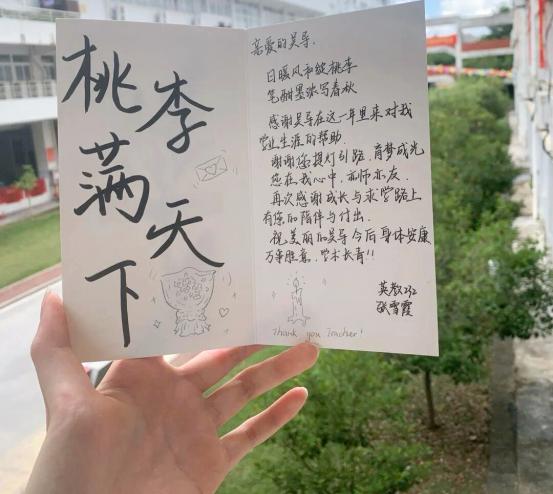 桃李
满天
下
亲爱的吴导、
日暖风和绽桃李
笔酣墨浓写春秋
感谢吴导在这一年里来对我
学业生涯的帮助.
谢谢您提灯引路,育梦成光
您在我心中,亦师亦友.
再次感谢成长与求学路上
有您的陪伴与付出.
祝美丽的吴导今后身体安康
万事胜意、学术长青!!
英教232
张雪霞
Thank you Teacher!